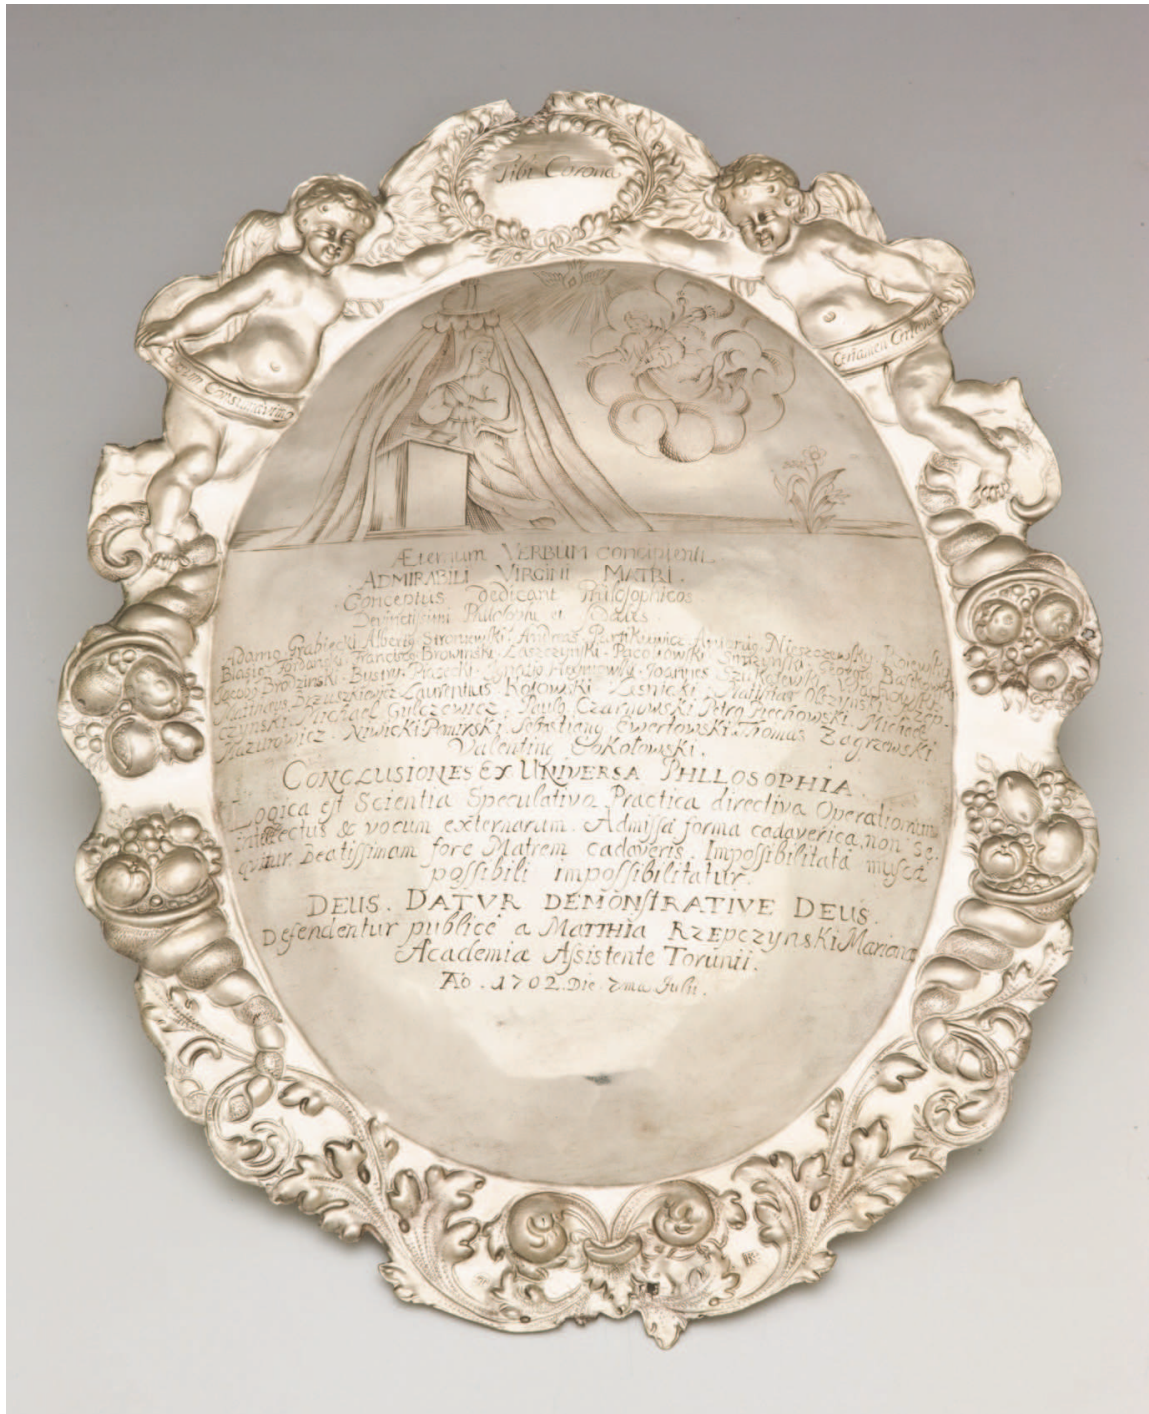 Tibi Corona
Certamen
Æternum VERBUM concipienti
ADMIRABILI VIRGINI MATRI.
Conceptus dedicant Philosophicos
Devinctissimi Philosophi et
Adamo Grabiecki Albertg Andreas Antonig Nieszczewsky
Blasig Francisco Browinski Laszczynski Pacoltowski
Jacobg Brodzinski Ignatio Joannes
Mattheus Brzuszkiewicz Laurentius Kołowski Lesnicki Mathias Olszynski Rzep-
czynski Michael Gulczewicz Paulg Czarnowski Petrg Piechowski Michael
Mazurowicz Niwicki Pomirski Sebastiang Ewertowski Thomas Zagrzewski
Valenting Sokołowski.
CONCLUSIONES EX UNIVERSA PHLLOSOPHIA.
Logica est Scientia Speculativo Practica directiva Operationum
intellectus & vocum externarum. Admissa forma cadaverica, non se-
quitur Beatissimam fore Matrem cadaveris. Impossibilitata musca
possibili impossibilitatur.
DEUS. DATVR DEMONSTRATIVE DEUS.
Defendentur publicè a MATTHIA RZEPCZYNSKI Mariana
Academia Assistente Torunii.
Ao. 1702. Die 7ma Julii.